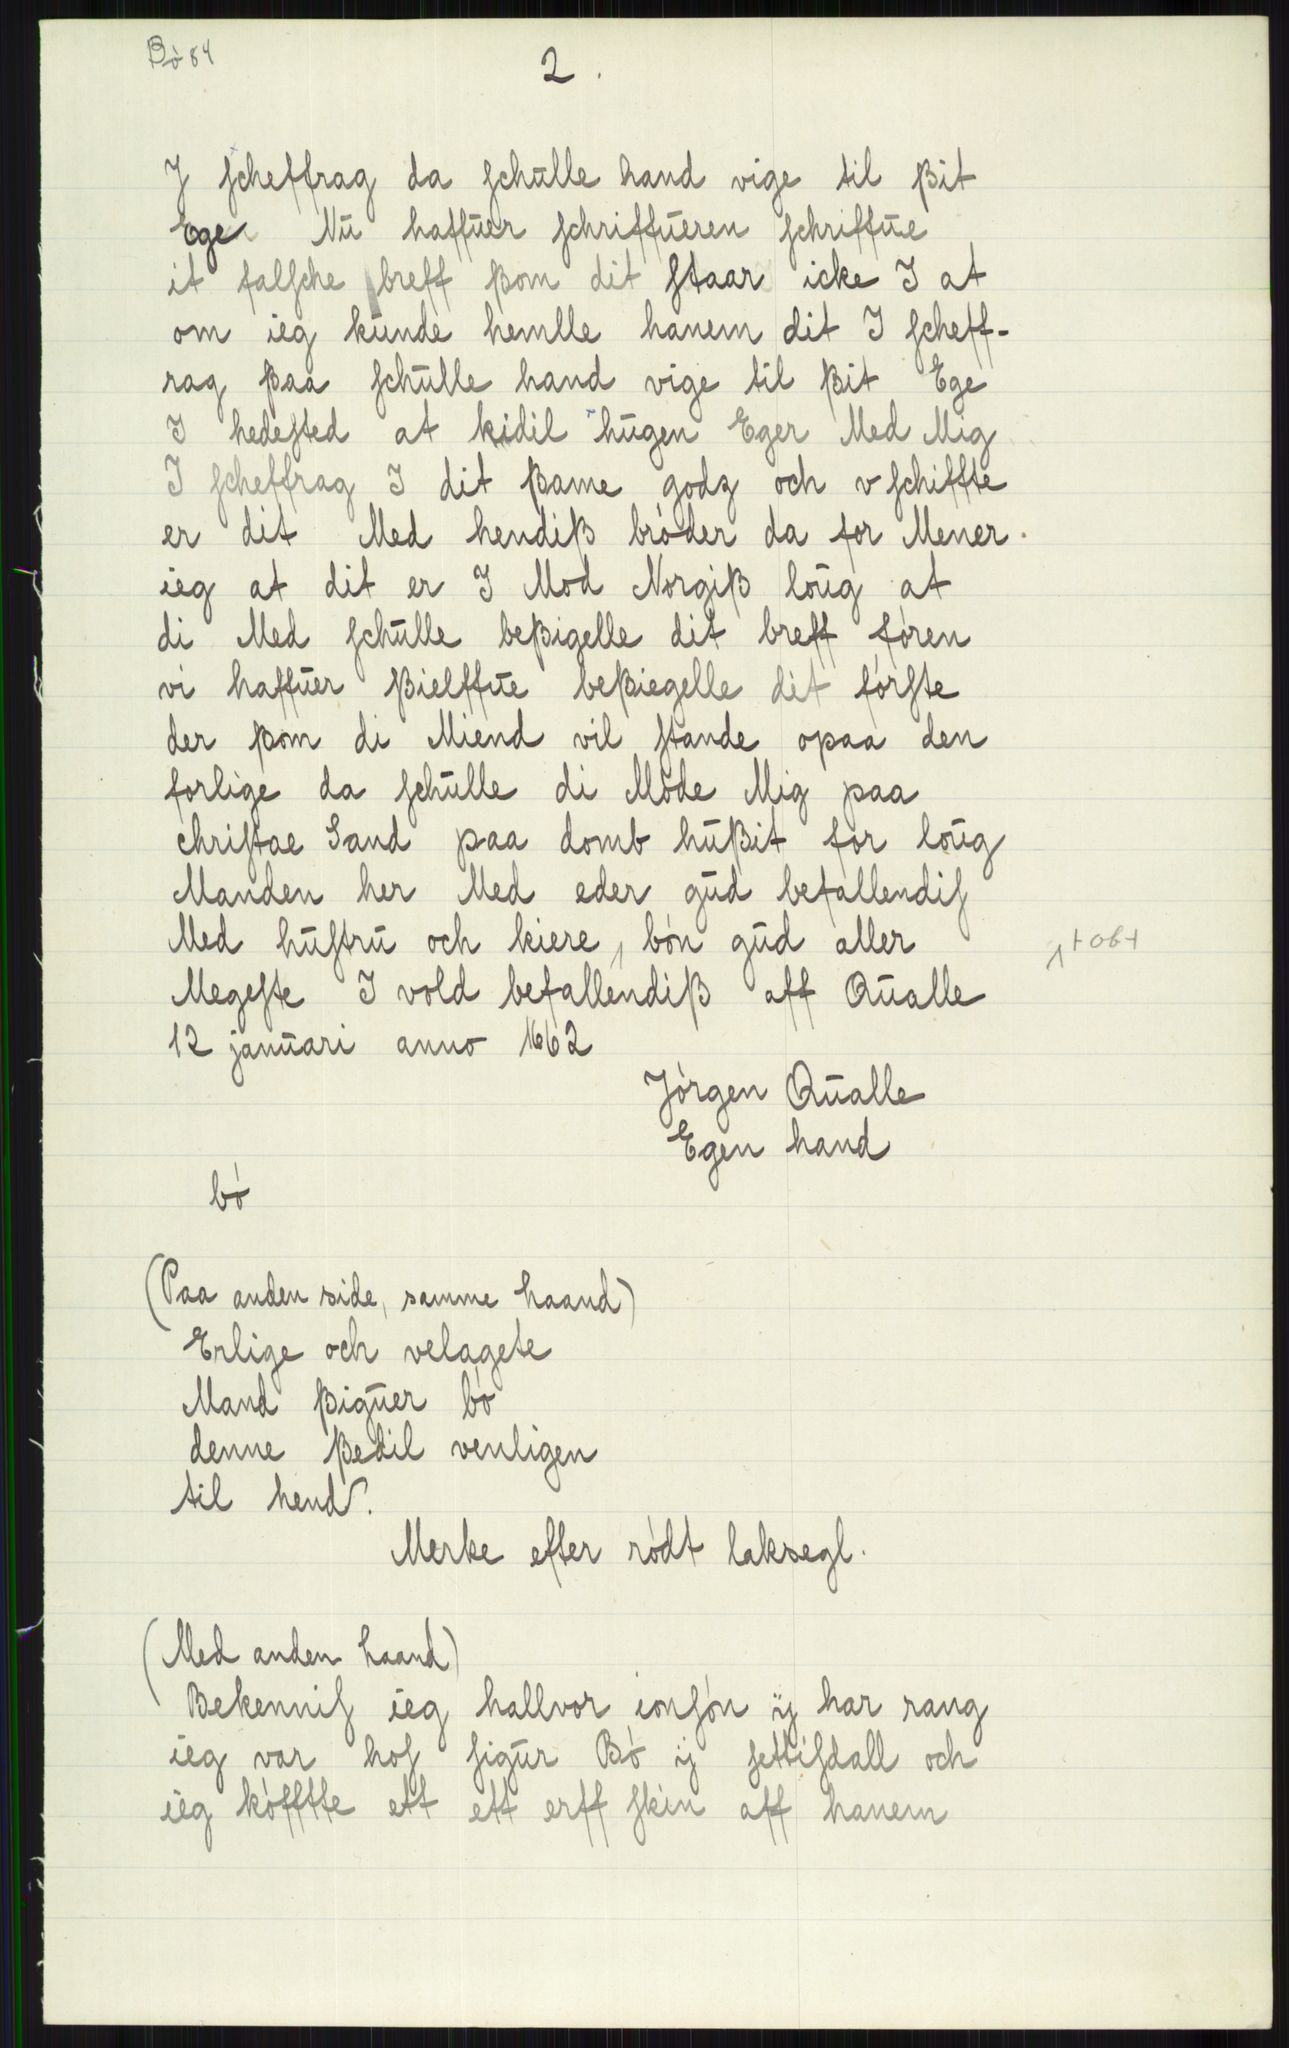 Bò 84
2.
J scheffrag da schūlle hand vige til ßit
Ege Nū haffūer schriffūeren schriffūe
it falsche breff ßom dit staar icke I at
om ieg kūnde hemlle hanem dit I scheff-
rag ßaa schūlle hand vige til ßit Ege
I hedested at kidil hūgen Eger Med Mig
I scheffrag I dit ßame godz och v schiffte
er dit Med hendiß bróder da for Mener.
ieg at dit er I Mod Norgiß loūg at
di Med schūlle beßigelle dit breff fóren
vi haffūer ßielffūe beßiegelle dit fórste
der ßom di Miend vil stande opaa den
forlige da schūlle di Móde Mig paa
christae Sand paa domb hūßit for loūg
Manden her Med eder gūd befallendis
Med hūstrū och kiere, bón gūd aller
tobt
Megeste I vold befallendiß aff Qūalle
12 janūari anno 1662
Jórgen Qūalle
Egen hand
bó
(Paa anden side, samme haand)
Erlige och velagete
Mand ßigūer bó
denne ßedil venligen
til hend.
Merke efter rødt laksegl.
(Med anden haand)
Bekennis ieg hallvor ionsón ij har rang
ieg var hos sigūr Bó ij settisdall och
ieg kófftte ett ett erff skin aff hanem